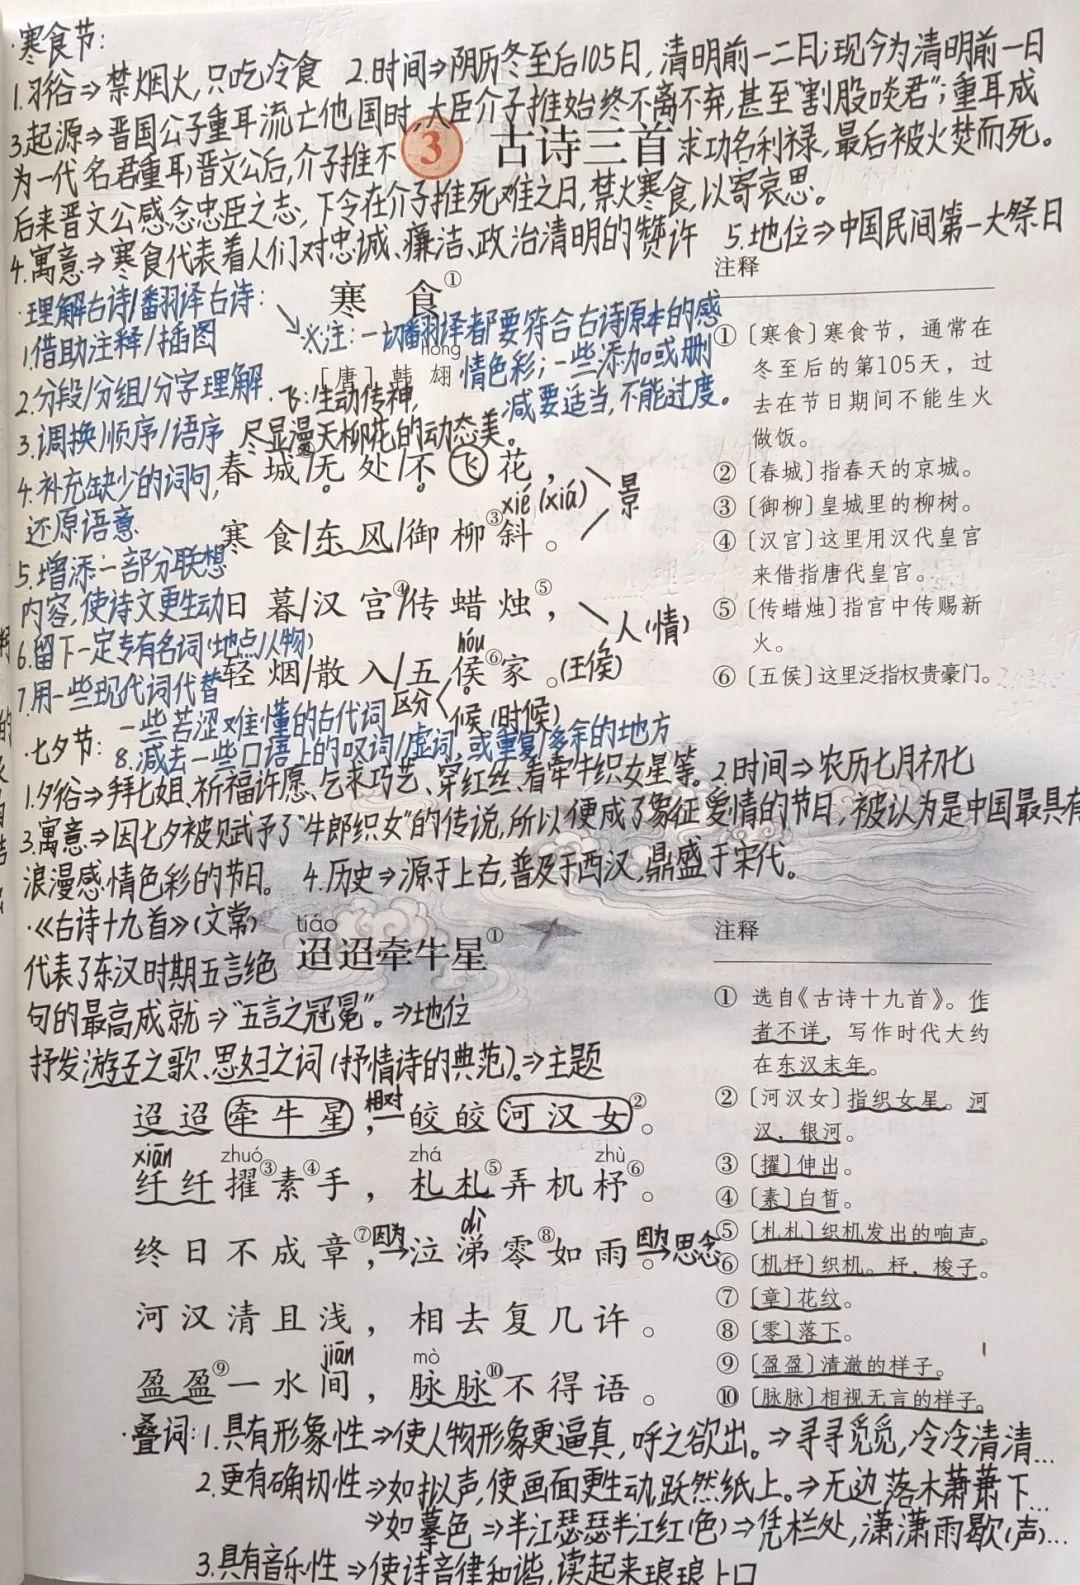 ·寒食节:
1.习俗⇒禁烟火,只吃冷食 2.时间⇒阴历冬至后105日,清明前一二日;现今为清明前一日
3.起源⇒晋国公子重耳流亡他国时,大臣介子推始终不离不弃,甚至"割股啖君";重耳成
3 古诗三首
为一代名君重耳,晋文公后,介子推不求功名利禄,最后被火焚而死。
后来晋文公感念忠臣之志,下令在介子推死难之日,禁火寒食,以寄哀思。
4.寓意⇒寒食代表着人们对忠诚、廉洁、政治清明的赞许 5.地位⇒中国民间第一大祭日
·理解古诗/翻译古诗:
1.借助注释/插图
2.分段/分组/分字理解
3.调换/顺序/语序
4.补充缺少的词句,
还原语意
5.增添一部分联想
内容,使诗文更生动
6.留下一定专有名词(地点/人物)
7.用一些现代词代替
一些苦涩难懂的古代词
8.减去一些口语上的叹词/虚词,或重复/多余的地方
※注:一切翻译者都要符合古诗原本的感
情色彩;一些添加或删
减要适当,不能过度。
寒食①
hóng
[唐]韩翃
·飞:生动传神,
尽显漫天柳花的动态美。
春城②/无处/不飞花,
xié(xiá)
寒食/东风/御柳③斜。
景
日暮/汉宫④/传蜡烛⑤,
人(情)
hóu
轻烟/散入/五侯⑥家。(王侯)
区分
候(时候)
注释
①〔寒食〕寒食节,通常在
冬至后的第105天,过
去在节日期间不能生火
做饭。
②〔春城〕指春天的京城。
③〔御柳〕皇城里的柳树。
④〔汉宫〕这里用汉代皇宫
来借指唐代皇宫。
⑤〔传蜡烛〕指宫中传赐新
火。
⑥〔五侯〕这里泛指权贵豪门。
·七夕节:
1.夕俗⇒拜七姐、祈福许愿、乞求巧艺、穿红丝、看牵牛织女星等。2时间⇒农历七月初七
3.寓意⇒因七夕被赋予了"牛郎织女"的传说,所以便成了象征爱情的节日,被认为是中国最具有
浪漫感情色彩的节日。 4.历史⇒源于上古,普及于西汉,鼎盛于宋代。
·《古诗十九首》(文常)
代表了东汉时期五言绝
句的最高成就⇒"五言之冠冕"。⇒地位
抒发游子之歌、思妇之词(抒情诗的典范)。⇒主题
tiáo
迢迢牵牛星①
迢迢牵牛星,皎皎河汉女②。
相对
xiān zhuó zhá zhù
纤纤擢③素④手,札札⑤弄机杼⑥。
dì
终日不成章⑦,泣涕零⑧如雨。
因为→ 因为→思念
河汉清且浅,相去复几许。
jiān mò
盈盈⑨一水间,脉脉⑩不得语。
注释
① 选自《古诗十九首》。作
者不详,写作时代大约
在东汉末年。
②〔河汉女〕指织女星。河
汉,银河。
③〔擢〕伸出。
④〔素〕白皙。
⑤〔札札〕织机发出的响声。
⑥〔机杼〕织机。杼,梭子。
⑦〔章〕花纹。
⑧〔零〕落下。
⑨〔盈盈〕清澈的样子。
⑩〔脉脉〕相视无言的样子。
·叠词:1.具有形象性⇒使人物形象更逼真,呼之欲出。⇒寻寻觅觅,冷冷清清…
2.更有确切性⇒如拟声,使画面更生动,跃然纸上。⇒无边落木萧萧下…
⇒如摹色⇒半江瑟瑟半江红(色)⇒凭栏处,潇潇雨歇(声)…
3.具有音乐性⇒使诗音律和谐,读起来琅琅上口